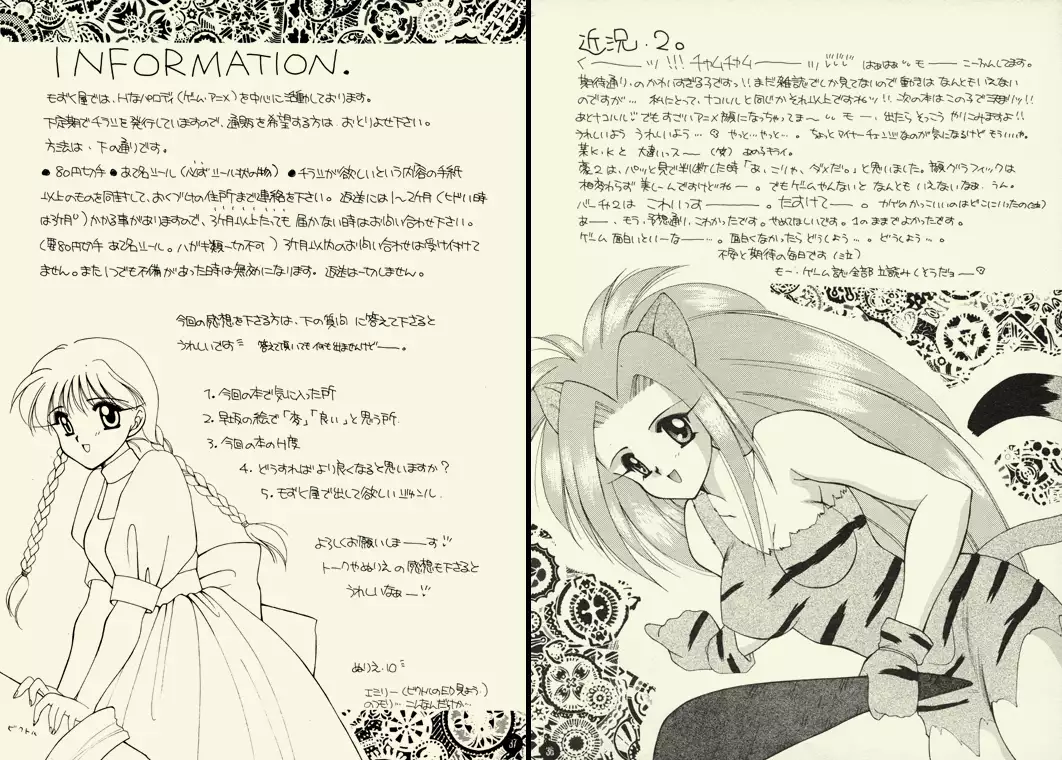 近況.2。
く───ッ!!! チャムチャム───ッ はぁはぁ モ── こーふんしてます。
期待通りのかわいすぎる子ですっ!!まだ雑誌でしか見てないので動きはなんともいえない
のですが… 私にとって、ナコルルと同じかそれ以上ですねッ!!次の本はこの子で決まりッ!!
あとナコルル すごいアニメ顔になっちゃってま〜 モー、出たら そっこう やりこみますよ!!
うれしいよう うれしいよう…。 やっと…やっと…。 なのが気になるけど もういいや。
某K・Kと 大違いっス──(笑) あのるキライ。
2は、パッと見で判断した時「あ、こりゃ、ダメだ。」と思いました。顔グラフィックは
相変わらず美し〜んですけどね─。でもゲームやんないと なんとも いえないなぁ、うん。
バーチャ2は こわいっす────。たすけて──。 かっこいいのはどこにいったの
あ──、もう、予想通り、こわかったです。やめてほしいです。1のままでよかったです。
ゲーム 面白いといーな───…。面白くなかったら どうしよう…。どうしよう…。
不安と期待の毎日です(泣)
モー、ゲーム誌 全部 立読みしそうだョ──
36
INFORMATION.
もずく屋では、Hなパロディ(ゲーム・アニメ)を中心に活動しております。
不定期でチラシを発行していますので、通販を希望する方は おとりよせ下さい。
方法は、下の通りです。
●80円切手 ●あて名シール(必ずシール状の物) ●チラシが欲しいという内容の手紙
以上のものを同封して、おくづけの住所まで連絡を下さい。返送には1〜2ヵ月(ヒドい時
は3ヵ月)かかる事がありますので、3ヵ月以上たっても 届かない時はお問い合せ下さい。
(要80円切手 あて名シール。ハガキ類一切不可) 3ヵ月以内のお問い合せは受け付けて
ません。また いつでも不備があった時は無効になります。返送は一切しません。
今回の感想を下さる方は、下の質問 に答えて下さると
うれしいです 答えて頂いても何も出ませんけど──。
1. 今回の本で気に入った所
2. 早坂の絵で「変」「良い」と思う所
3. 今回の本のH度
4. どうすればより良くなると思いますか?
5. もずく屋で出して欲しいジャンル
よろしくお願いしま──す
トークやぬりえの感想も下さると
うれしいなぁ─
ぬりえ.10
エミリー(ビクトルのED見よう。)
のつもり… こんなんだけか…
ビクトル
37